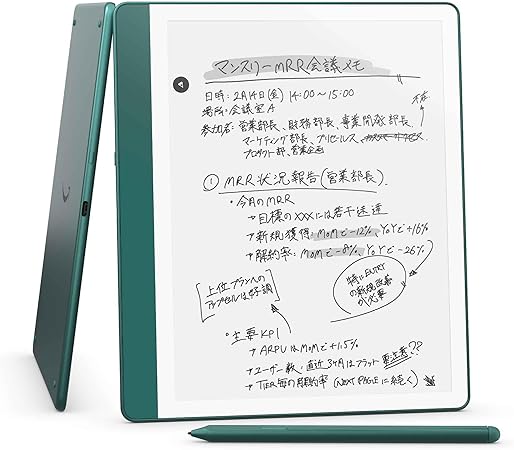 マンスリーMRR会議メモ
日時：2月14日(金) 14:00〜15:00
場所：会議室A
参加者：営業部長、財務部長、事業開発部長
欠席
マーケティング部長、プリセールス、カスタマーサクセス
プロダクト部、営業企画
① MRR状況報告(営業部長)
・今月のMRR
→目標のXXXには若干未達
→新規獲得：MoMで-12%、YoYで+16%
→解約率：MoMで-8%、YoYで-26%
上位プランへの
アップセルは好調
特にENTRY
の新規改善
が必要
・主要KPI
→ARPUはMoMで+1.5%
→ユーザー数：直近3ヶ月はフラット 要注意??
→TIER毎の解約率 (NEXT PAGEに続く)